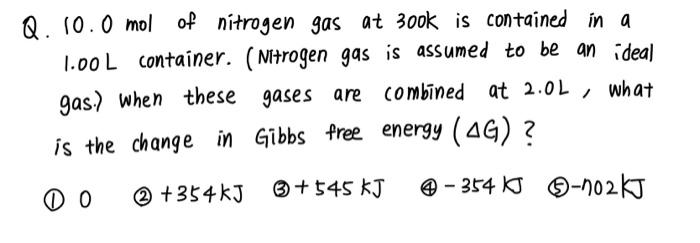 Q. 10.0 mol of nitrogen gas at 300k is contained in a
1.00 L container. (Nitrogen gas is assumed to be an ideal
gas.) when these gases are combined at 2.0L , what
is the change in Gibbs free energy (ΔG) ?
① 0 ② +354kJ ③ +545 kJ ④ -354 kJ ⑤ -702kJ